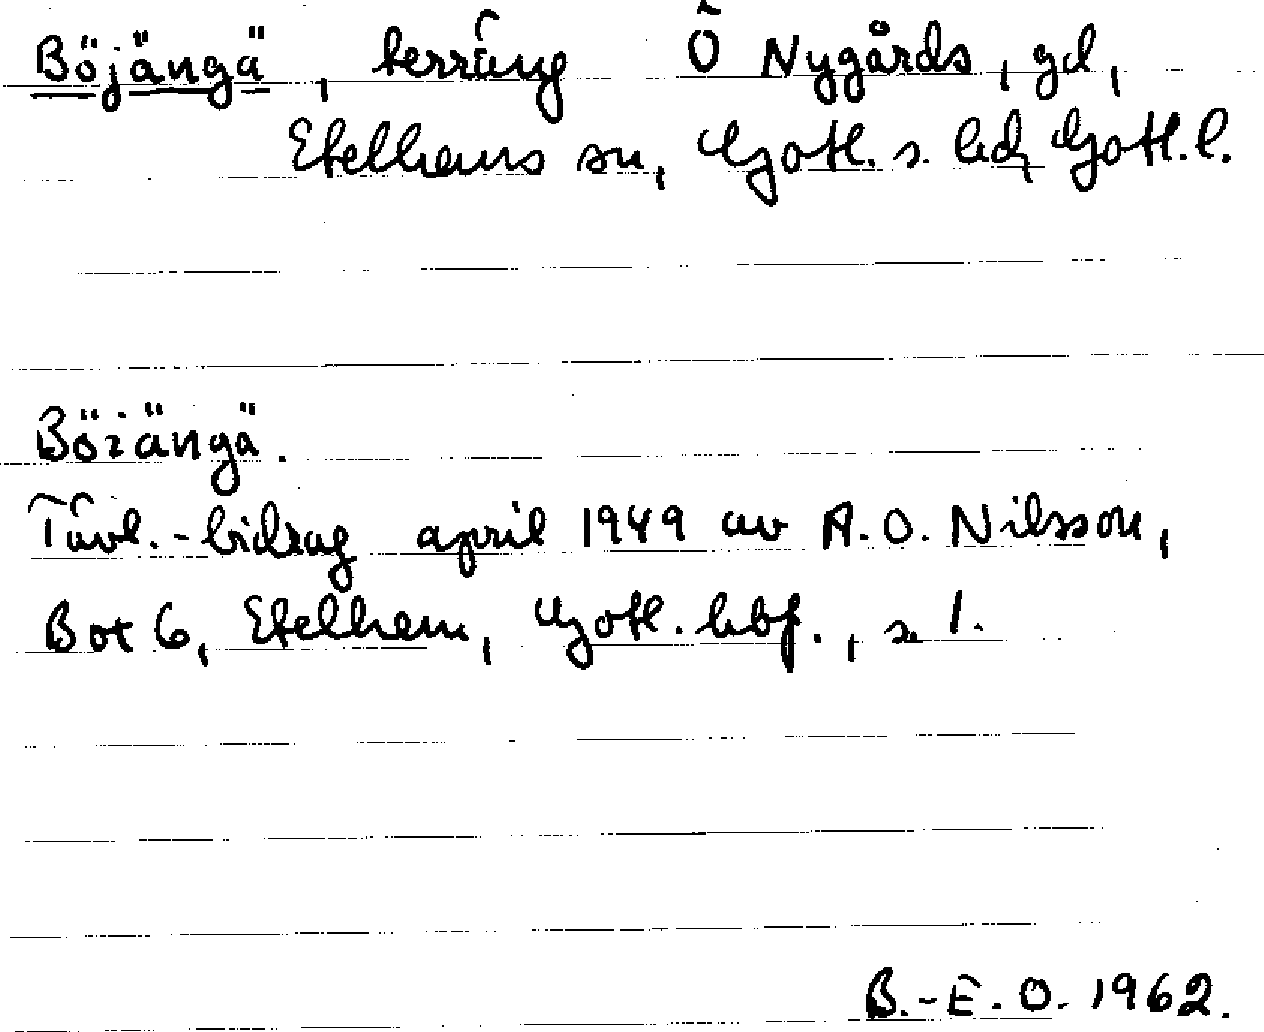 Böjängä, terräng Ö Nygårds, gd,
Etelhems sn, Gotl. s. hd, Gotl. l.
Böiängä.
Tävl.-bidrag april 1949 av A. O. Nilsson,
Box 6, Etelhem, Gotl. hbf., s. 1.
B.-E. O. 1962.